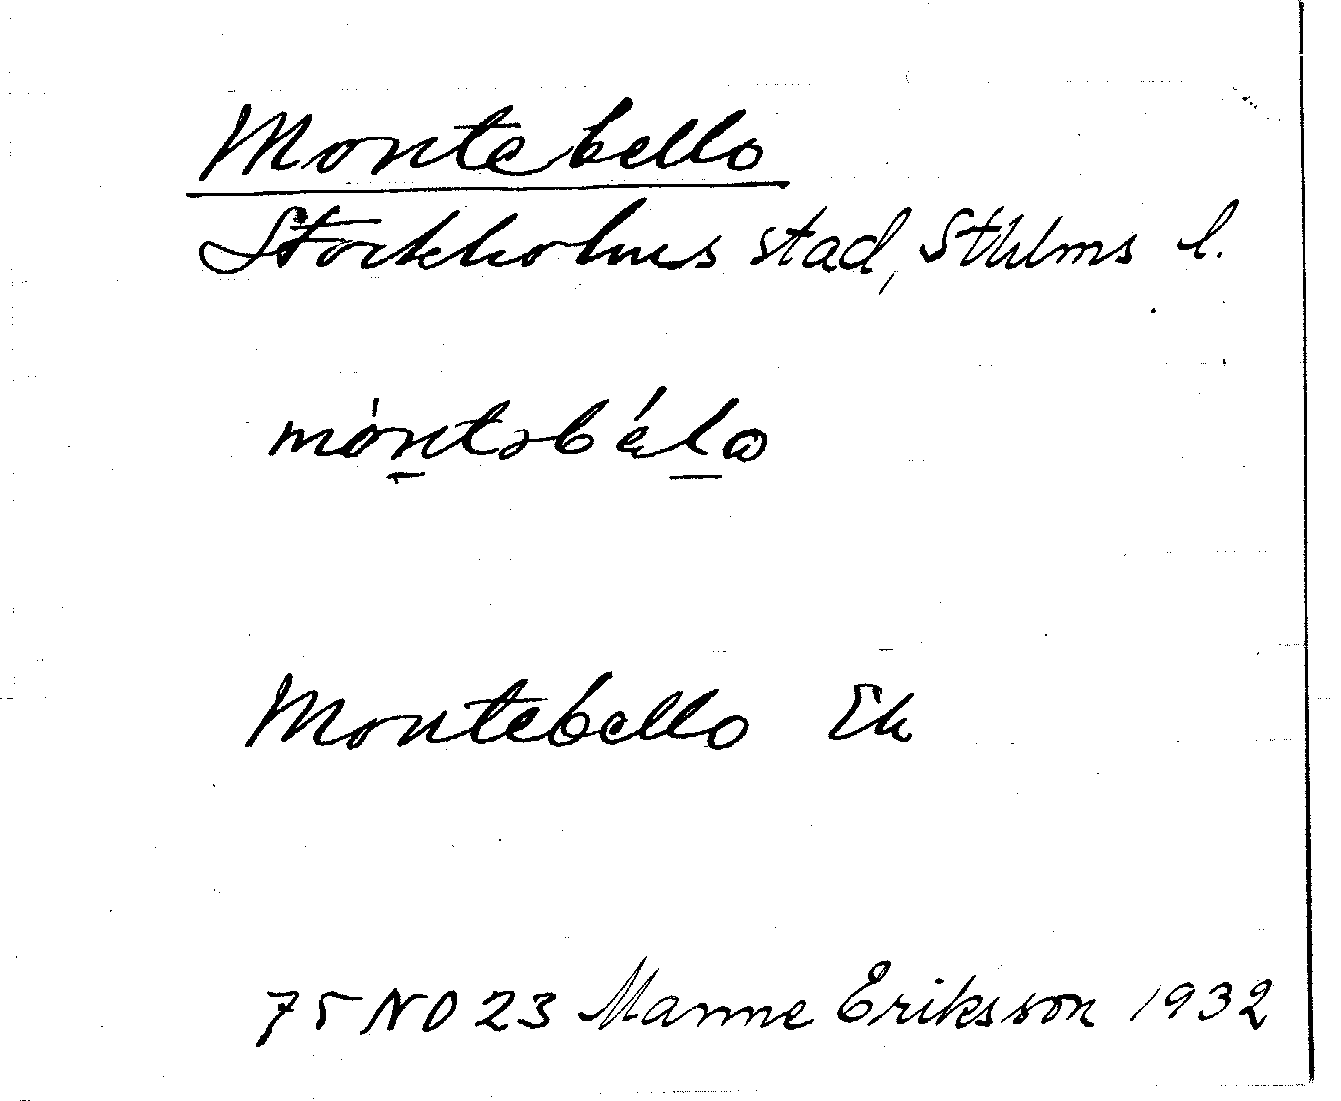 Montebello
Stockholms stad, Sthlms l.
Montebello Ek
75 NO 23 Manne Eriksson 1932